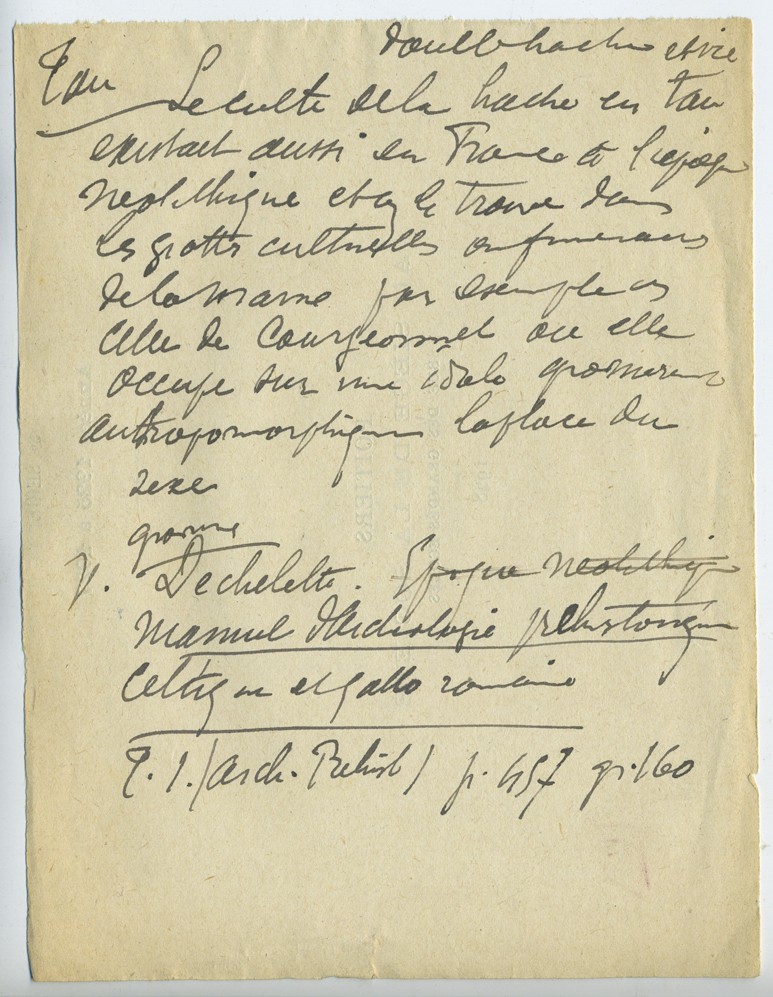 double hache et vie
Tau
Le culte de la hache en tau
existait aussi en France à l'époque
néolithique et on le trouve dans
les grottes culturelles ou funéraires
de la Marne par exemple
celle de Courjeonnet ou elle
occupe sur une idole grossièrement
anthropomorphique la place du
sexe
V. Dechelette. Epoque neolithique
Manuel d'Archéologie préhistorique
Celtique et gallo romaine
T. 1. (Arch. Préhist) p. 457 160